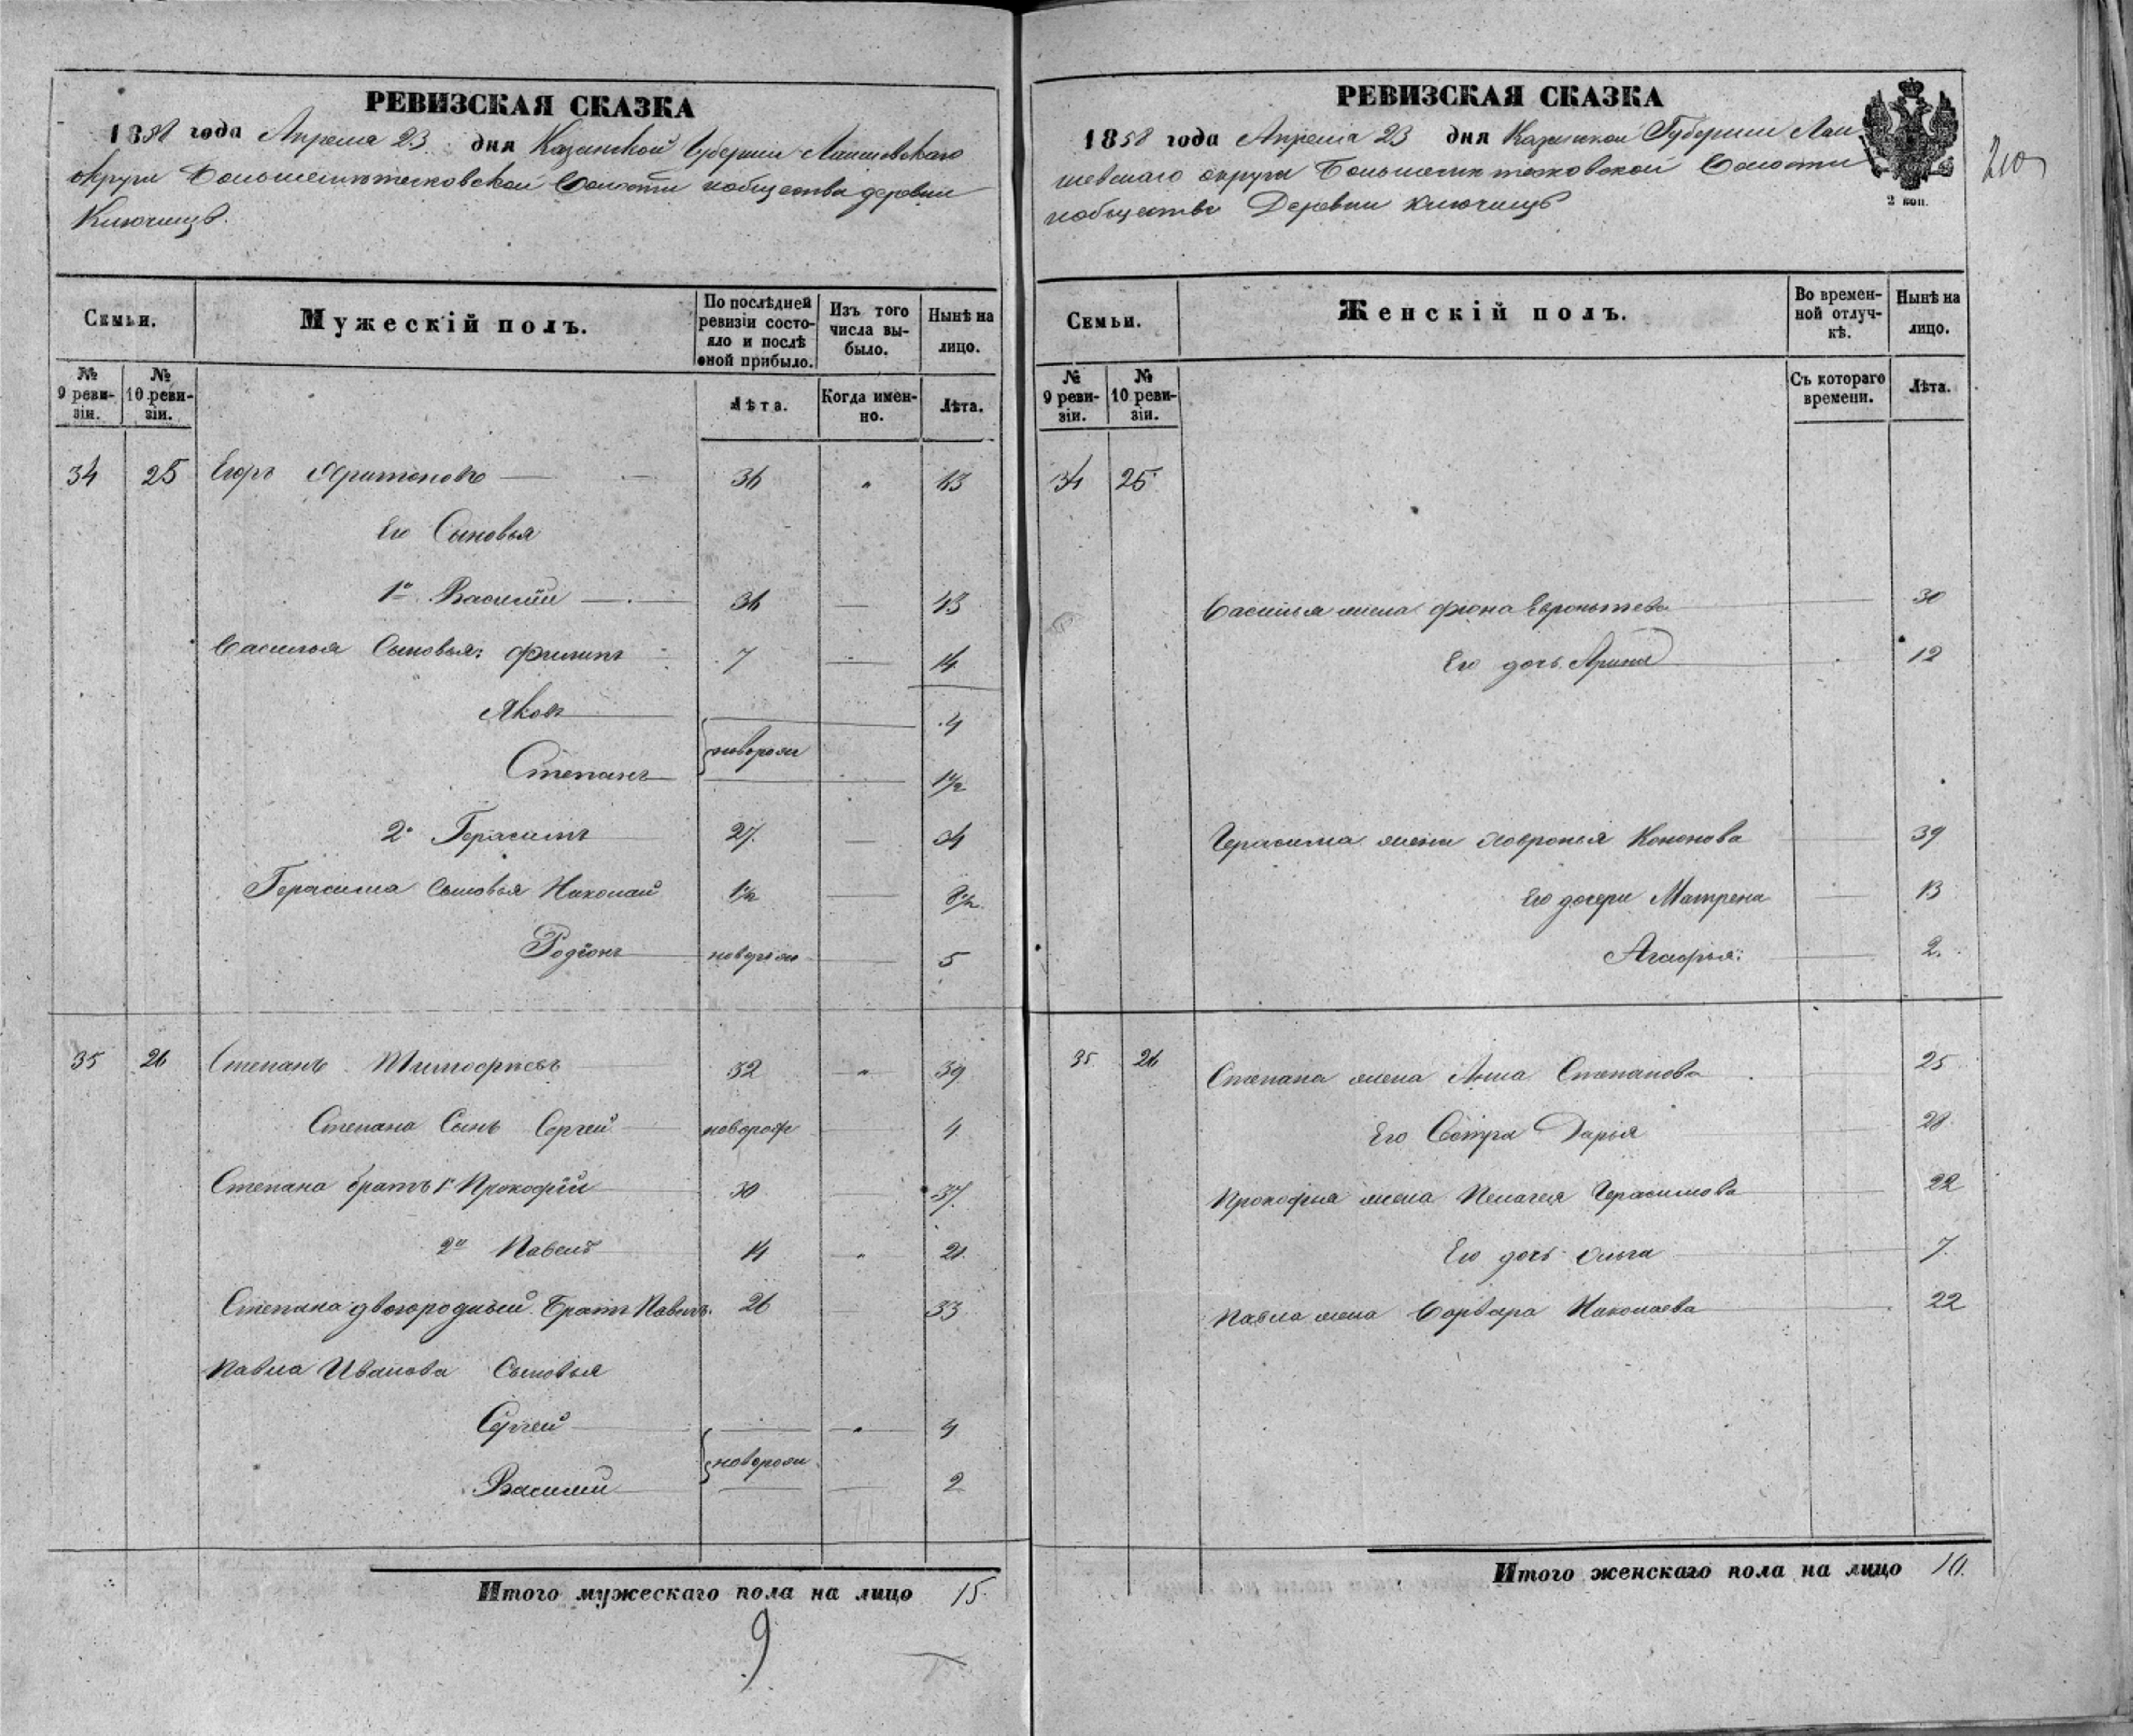 РЕВИЗСКАЯ СКАЗКА
1858 года Апреля 23 дня Казанской Губернии Лаишевскаго
округа Волости и общества деревни
Ключищъ.
Семьи.
Мужескій полъ.
По послѣдней ревизіи состояло и послѣ оной прибыло.
Изъ того числа выбыло.
Нынѣ на лицо.
№ 9 ревизіи.
№ 10 ревизіи.
Лѣта.
Когда именно.
Лѣта.
34 25 Егоръ Харитоновъ 36 " 43
Его Сыновья
1й Василій 36 — 43
Василья Сыновья: Филипъ 7 — 14
Яковъ 4
новорож
Степанъ 1 1/2
2й Герасимъ 27 — 34
Герасима Сыновья Николай 1 1/2 — 8 1/2
Родіонъ новорож — 5
35 26 Степанъ Тимофѣевъ 32 " 39
Степана Сынъ Сергей новорож — 4
Степана братъ 1й Прокофій 30 — 37
2й Павелъ 14 " 21
Степана двоюродный Братъ Павелъ 26 — 33
Павла Иванова Сыновья
Сергей " 4
новорож
Василий — 2
Итого мужескаго пола на лицо 15.
9
РЕВИЗСКАЯ СКАЗКА
1858 года Апреля 23 дня Казанской Губернии Лаи
шевскаго округа Волости
и общества Деревни Ключищъ
2 коп.
210
Семьи.
Женскій полъ.
Во временной отлучкѣ.
Нынѣ на лицо.
№ 9 ревизіи.
№ 10 ревизіи.
Съ котораго времени.
Лѣта.
34 25
Василья жена 30
Его дочь Арина 12
Герасима жена Ховронья Кононова 39
Его дочери Матрена 13
Агафья: 2.
35 26 Степана жена Анна Степанова 25
Его Сестра Дарья 28
Прокофья жена Пелагея Герасимова 22
Его дочь Ольга 7.
Павла жена Варвара Николаева 22
Итого женскаго пола на лицо 10.